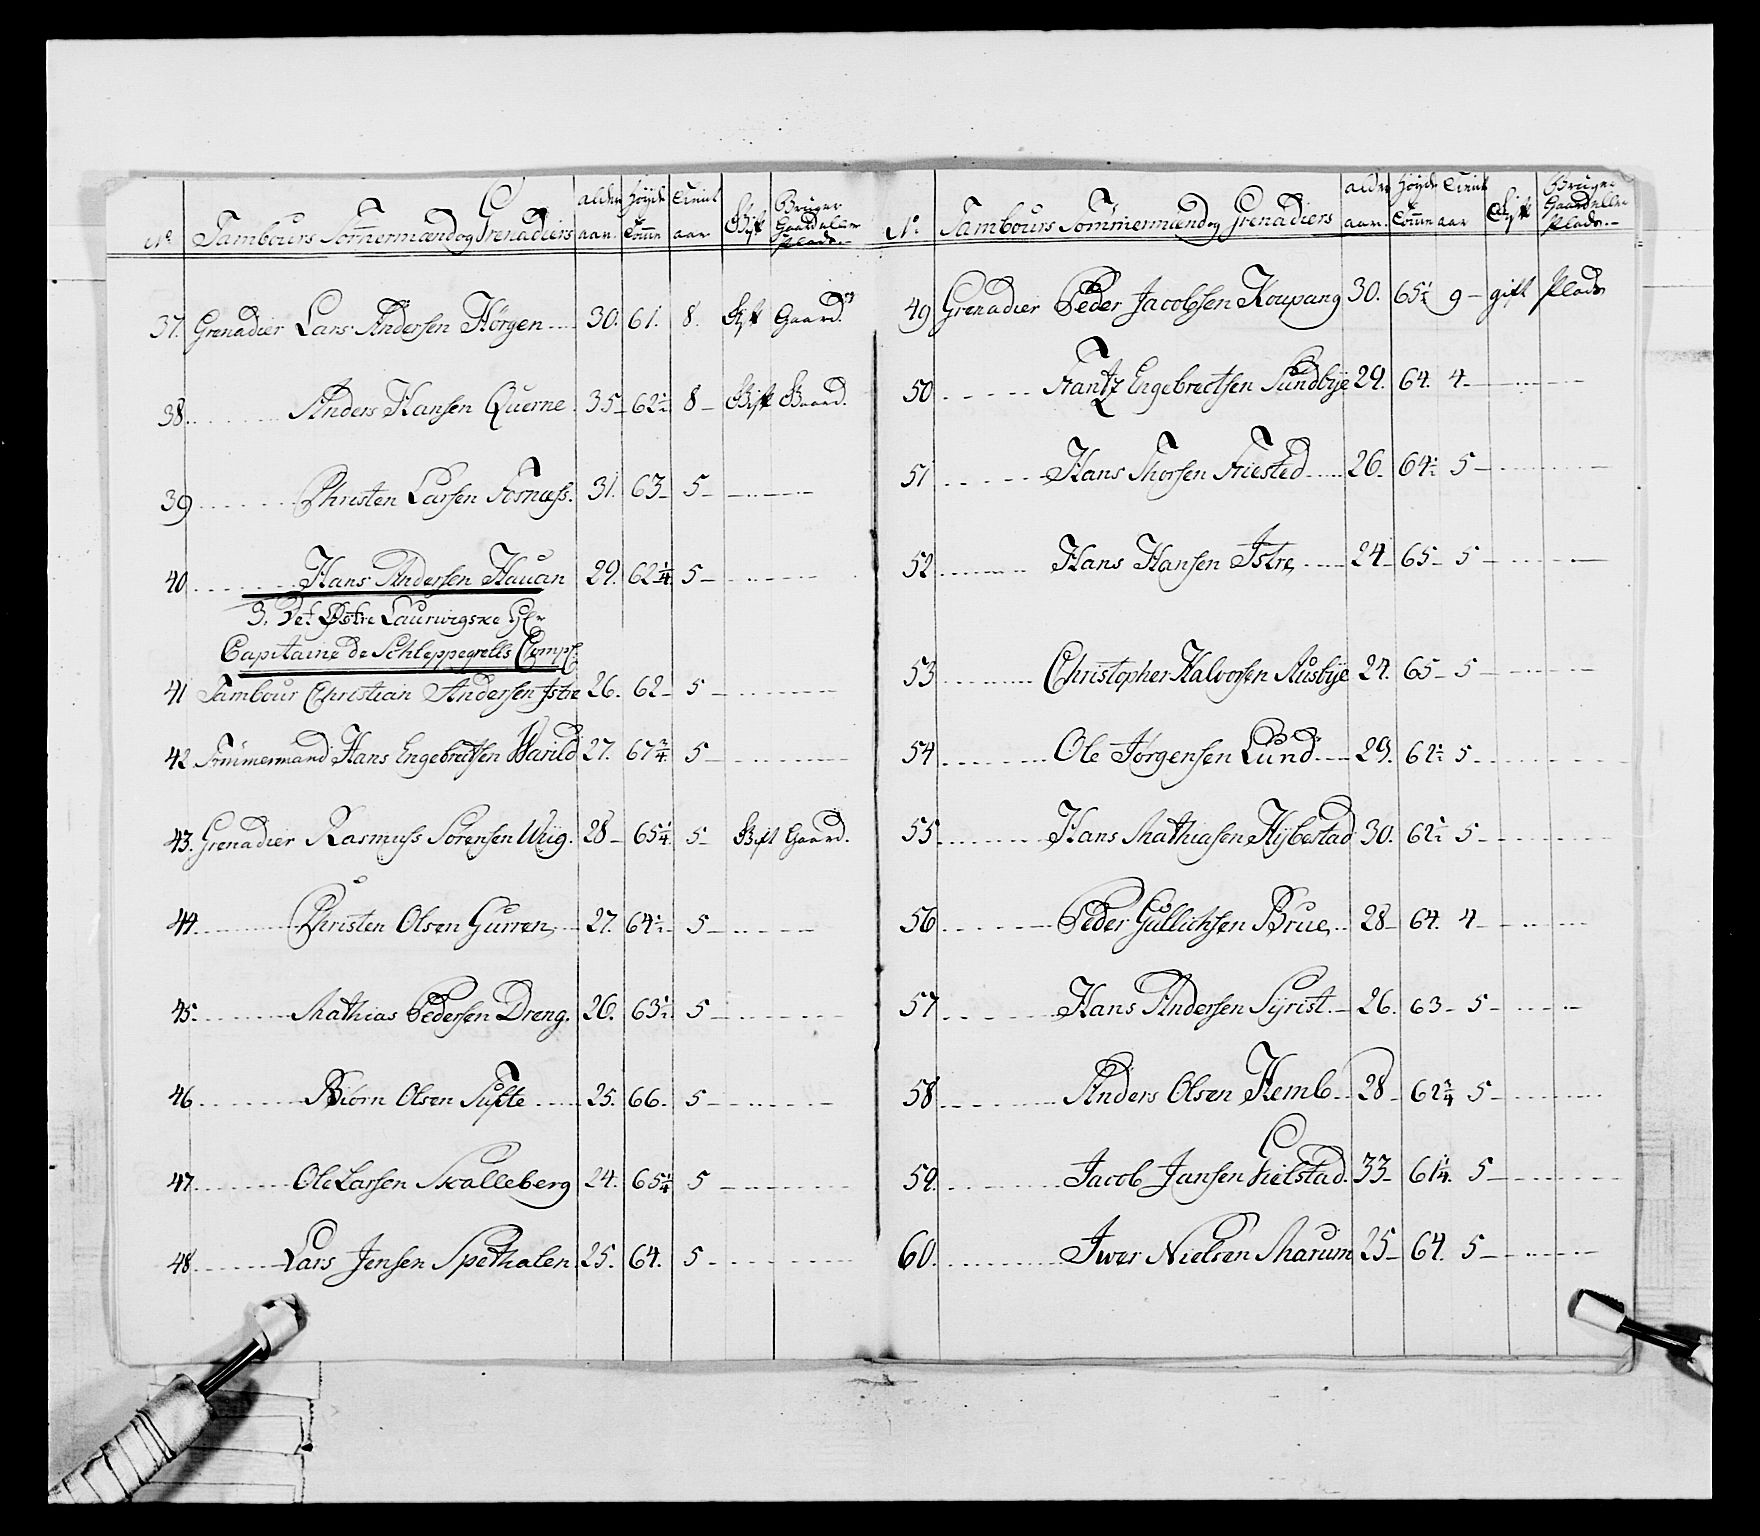 No Tambours Tømermænd og Grenadiers alder aar. høyde Tomme Tienist aar Gift Bruger Gaard eller Plads.
37. Grenadier Lars Andersen Hørgen 30. 61. 8. Gift Gaard.
38. Anders Hansen Querne 35 62½ 8 Gift Gaard.
39 Christen Larsen Fosnæss. 31. 63 5
40 Hans Andersen Hauan 29. 62¼ 5
3. Det Østre Laurwigske Hr
Capitaine de Schleppegrells Comp:
41 Tambour Christian Andersen Istre 26. 62 5
42 Tømmermand Hans Engebretsen Warild 27. 67¾ 5
43. Grenadier Rasmuss Sørensen Wiig. 28 65¼ 5 Gift Gaard.
44 Christen Olsen Gurren 27. 64½ 5
45. Mathias Pedersen Dreng. 26. 63½ 5
46 Biørn Olsen Tufte 25. 66. 5
47 Ole Larsen Skalleberg 24. 65¾ 5
48 Lars Jensen Spethalen 25. 64. 5
No Tambours Tømmermænd og Grenadiers alder aar. høyde Tomme Tienist aar Gift Bruger Gaard eller Plads.
49 Grenadier Peder Jacobsen Koupang 30. 65½ 9 gift Plads
50 Frantz Engebrectsen Sundbye 29. 64. 4
51 Hans Thorsen Friested 26. 64½ 5
52 Hans Hansen Istre 24 65 5
53 Christopher Halvorsen Ausbye 24. 65 5
54 Ole Jørgensen Lund 29. 62½ 5
55 Hans Mathiasen Hybestad 30. 62½ 5
56 Peder Gullichsen Brue 28 64. 4
57 Hans Andersen Syrist. 26. 63 5
58 Anders Olsen Hemb 28 62¾ 5
59. Jacob Jansen Gielstad. 33 61¼ 5
60. Iwer Nielsen Marum 25 64. 5